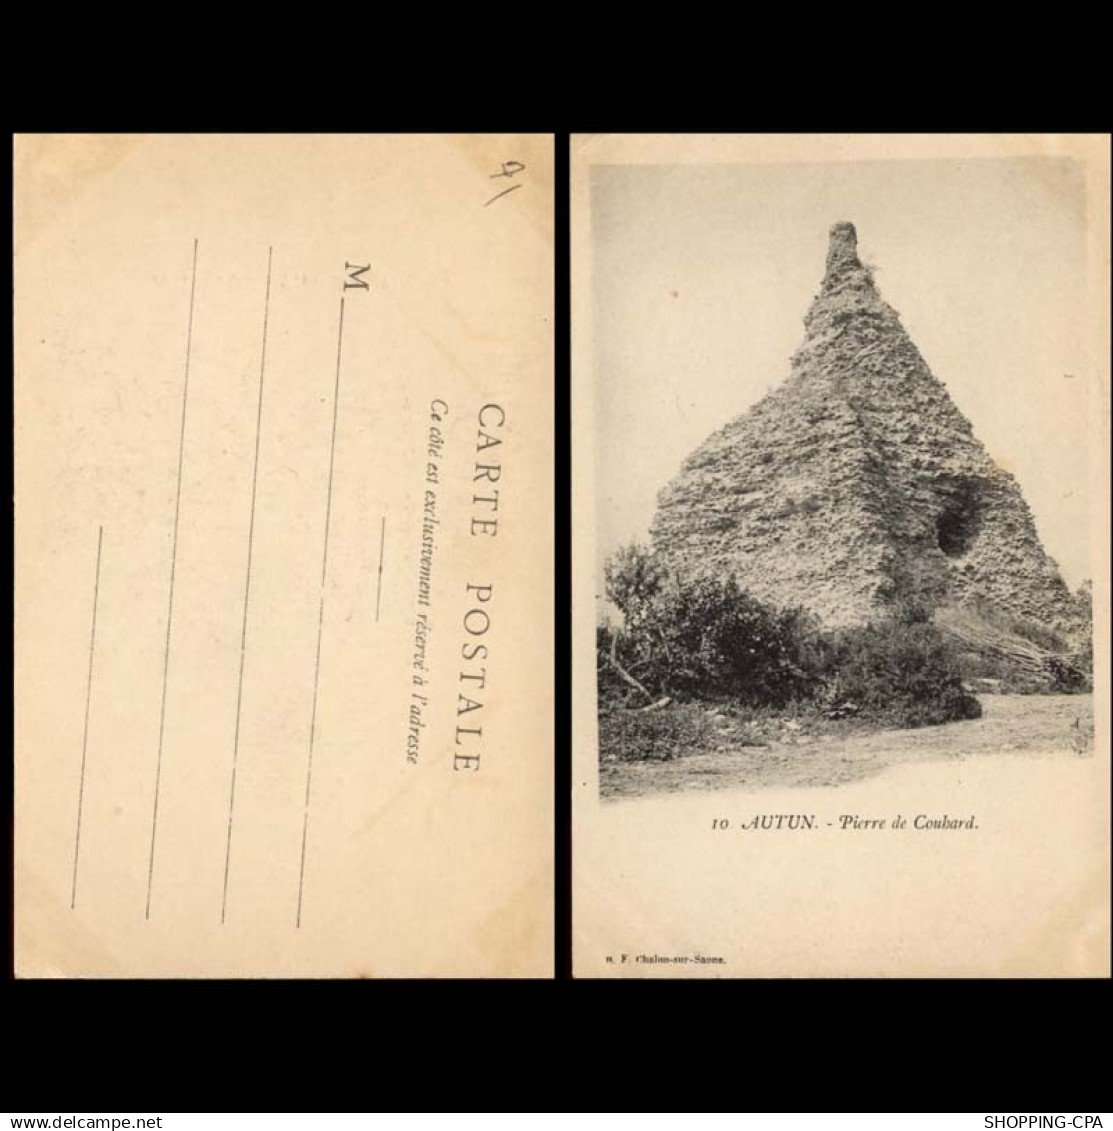 M
CARTE POSTALE
Ce côté est exclusivement réservé à l'adresse
10 AUTUN. - Pierre de Couhard.
F. Chalon-sur-Saone.
www.delcampe.net
SHOPPING-CPA